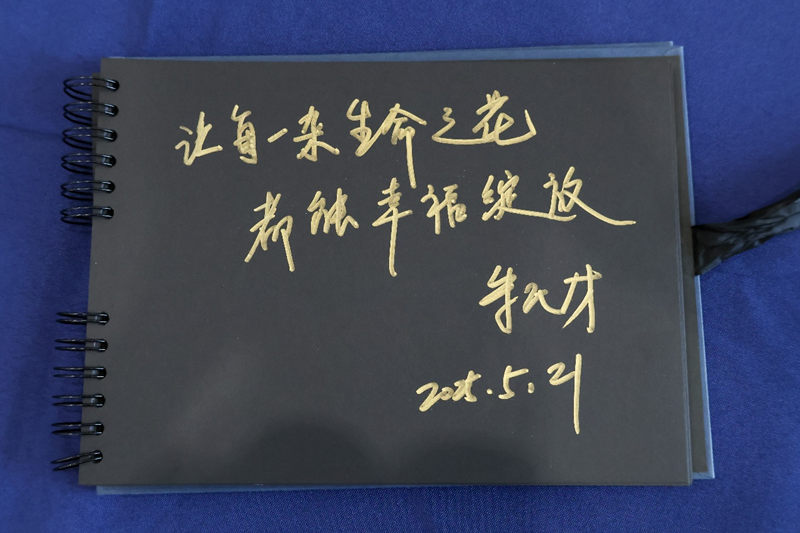 让每一朵生命之花
都能幸福绽放
朱民才
2025.5.21